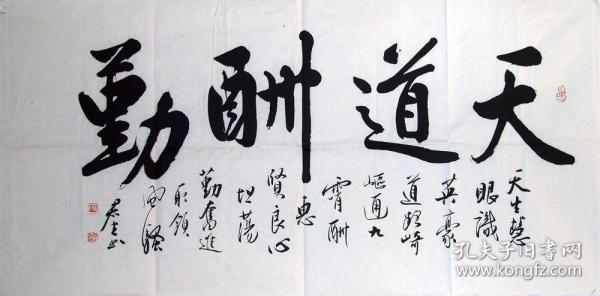 天道酬勤
天生慧
眼識
英豪
道路崎
嶇通九
霄酬
惠
賢良心
坦蕩
勤奮進
取領
風騷
孔夫子旧书网
www.kongfz.com